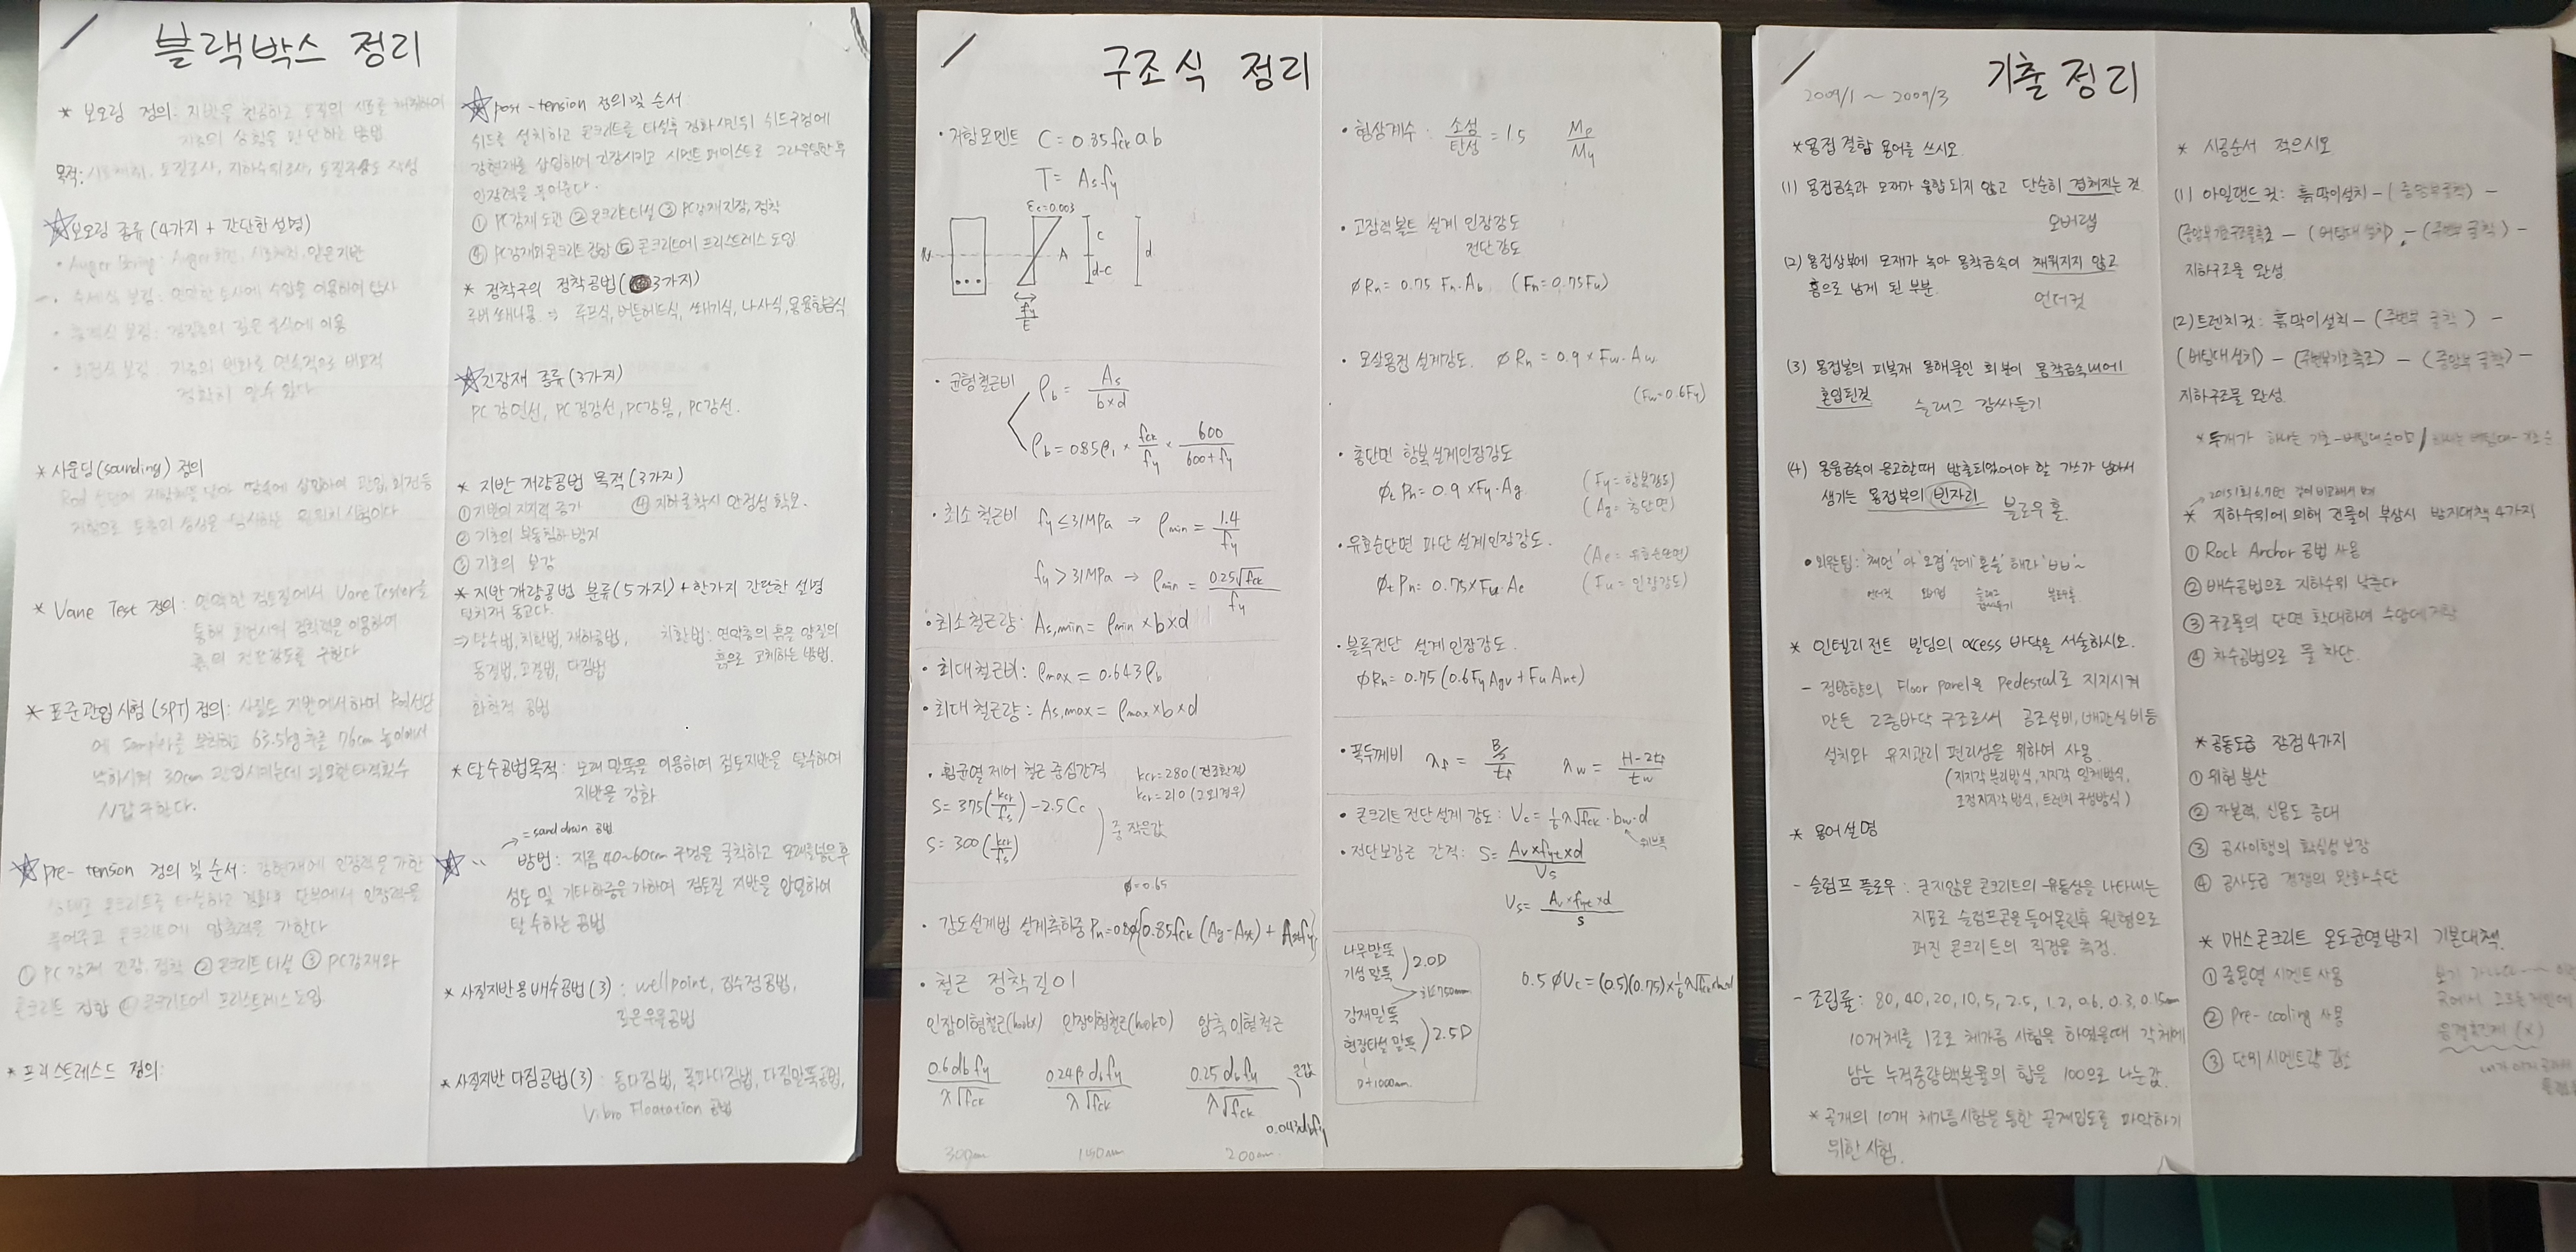 블랙박스 정리
* 보오링 정의: 지반을 천공하고 토질의 시료를 채취하여
지층의 상황을 판단하는 방법
목적: 시료채취, 토질조사, 지하수위조사, 토질주상도 작성
보오링 종류 (4가지 + 간단한 설명)
• Auger Boring: Auger 회전, 시료채취, 얕은지반
• 수세식 보링: 연약한 토사에 수압을 이용하여 탐사
• 충격식 보링: 경질층의 깊은 굴삭에 이용
• 회전식 보링: 지층의 변화를 연속적으로 비교적
정확히 알수 있다
* 사운딩 (sounding) 정의
Rod 선단에 저항체를 달아 땅속에 삽입하여 관입, 회전등
저항으로 토층의 성상을 탐사하는 원위치 시험이다
* Vane Test 정의: 연약한 점토질에서 Vane Tester를
통해 회전시켜 점착력을 이용하여
흙의 전단강도를 구한다
* 표준관입 시험 (SPT) 정의: 사질토 지반에서 하며 Rod선단
에 Sampler를 부착하고 63.5kg 추를 76cm 높이에서
낙하시켜 30cm 관입시키는데 필요한 타격횟수
N값 구한다.
pre-tension 정의 및 순서: 강현재에 인장력을 가한
상태로 콘크리트를 타설하고 경화후 단부에서 인장력을
풀어주고 콘크리트에 압축력을 가한다
① PC강재 긴장, 정착 ② 콘크리트 타설 ③ PC강재와
콘크리트 접합 ④ 콘크리트에 프리스트레스 도입
* 프리스트레스드 정의:
post-tension 정의 및 순서
쉬드를 설치하고 콘크리트를 타설후 경화시킨뒤 쉬드구멍에
강현재를 삽입하여 긴장시키고 시멘트 페이스트로 그라우팅한 후
인장력을 풀어준다.
① PC강재 도관 ② 콘크리트 타설 ③ PC강재 긴장, 정착
④ PC강재와 콘크리트 접합 ⑤ 콘크리트에 프리스트레스 도입
* 정착구의 정착공법 (3가지)
루버쐐나용 ⇒ 루프식, 버튼헤드식, 쐐기식, 나사식, 용융합금식
긴장재 종류 (3가지)
PC강연선, PC경강선, PC강봉, PC강선.
* 지반 개량공법 목적 (3가지)
① 지반의 지지력 증가 ④ 지하굴착시 안정성 확보.
② 기초의 부동침하 방지
③ 기초의 보강
* 지반 개량공법 분류 (5가지) + 한가지 간단한 설명
탈치재 동고다.
⇒ 탈수법, 치환법, 재하공법, 치환법: 연약층의 흙을 양질의
동결법, 고결법, 다짐법 흙으로 교체하는 방법.
화학적 공법
* 탈수공법목적: 모래 말뚝을 이용하여 점토지반을 탈수하여
지반을 강화.
= sand drain 공법
" 방법: 지름 40~60cm 구멍을 굴착하고 모래를넣은후
성토 및 기타하중을 가하여 점토질 지반을 압밀하여
탈수하는 공법
* 사질지반용 배수공법 (3): wellpoint, 집수정공법,
깊은우물공법
* 사질지반 다짐공법 (3): 동다짐법, 폭파다짐법, 다짐말뚝공법,
Vibro Floatation 공법
구조식 정리
• 저항모멘트 C = 0.85fck ab
T = As.fy
εc=0.003
N A c d-c d
fy/E
• 균형철근비 ρb = As / b×d
ρb = 0.85β1 × fck/fy × 600/600+fy
• 최소 철근비 fy ≤ 31MPa → ρmin = 1.4/fy
fy > 31MPa → ρmin = 0.25√fck / fy
• 최소철근량: As,min = ρmin × b × d
• 최대철근비: ρmax = 0.643ρb
• 최대 철근량: As,max = ρmax × b × d
• 휨균열 제어 철근 중심간격 kcr=280 (건조환경)
kcr=210 (그외경우)
S = 375(kcr/fs) - 2.5Cc
S = 300(kcr/fs) 중 작은값
φ=0.65
• 강도설계법 설계축하중 Pn=0.80φ{0.85fck (Ag-Ast) + Astfy}
• 철근 정착길이
인장이형철근(hookx) 인장이형철근(hookO) 압축 이형철근
0.6dbfy / λ√fck 0.24βdbfy / λ√fck 0.25dbfy / λ√fck 큰값
0.043dbfy
300mm 150mm 200mm
• 형상계수: 소성/탄성 = 1.5 Mp/My
• 고장력볼트 설계 인장강도
전단강도
φRn = 0.75 Fn.Ab (Fn=0.75Fu)
• 모살용접 설계강도. φRn = 0.9 × Fw.Aw
(Fw=0.6Fy)
• 총단면 항복 설계인장강도
φtPn = 0.9 × Fy.Ag (Fy = 항복강도)
(Ag = 총단면)
• 유효순단면 파단 설계인장강도. (Ae = 유효순단면)
φtPn = 0.75×Fu.Ae (Fu = 인장강도)
• 블록전단 설계인장강도.
φRn = 0.75 (0.6FyAgv + FuAnt)
• 폭두께비 λf = B/2 / tf λw = H-2tf / tw
• 콘크리트 전단설계 강도: Vc = 1/6 λ√fck.bw.d
웨브폭
• 전단보강근 간격: S = Av×fyt×d / Vs
Vs = Av×fyt×d / s
나무말뚝
기성말뚝 ) 2.0D
최소750mm
강재말뚝
현장타설 말뚝 ) 2.5D
D+1000mm
0.5φVc = (0.5)(0.75)×1/6λ√fck.bw.d
기출정리
2009/1 ~ 2009/3
* 용접 결함 용어를 쓰시오.
(1) 용접금속과 모재가 융합되지 않고 단순히 겹쳐지는 것
오버랩
(2) 용접상부에 모재가 녹아 용착금속이 채워지지 않고
홈으로 남게 된 부분. 언더컷
(3) 용접봉의 피복재 용해물인 회분이 용착금속내에
혼입된것 슬래그 감싸들기
(4) 용융금속이 응고할때 방출되었어야 할 가스가 남아서
생기는 용접부의 빈자리 블로우 홀.
언더컷 오버랩 슬래그감싸들기 블로우홀
* 인텔리전트 빌딩의 access 바닥을 서술하시오.
- 정방향의 Floor panel을 Pedestal로 지지시켜
만든 2중바닥 구조로써 공조설비, 배관설비등
설치와 유지관리 편리성을 위하여 사용
(지지각 분리방식, 지지각 일체방식,
조정지지각 방식, 트렌치 구성방식)
* 용어설명
- 슬럼프 플로우: 굳지않은 콘크리트의 유동성을 나타내는
지표로 슬럼프콘을 들어올린후 원형으로
퍼진 콘크리트의 직경을 측정.
- 조립률: 80, 40, 20, 10, 5, 2.5, 1.2, 0.6, 0.3, 0.15mm
10개체를 1조로 체가름 시험을 하였을때 각체에
남는 누적중량백분율의 합을 100으로 나눈값.
* 골재의 10개 체가름시험을 통한 골재입도를 파악하기
위한 시험.
* 시공순서 적으시오
(1) 아일랜드 컷: 흙막이설치 - (중앙부굴착) -
(중앙부기초구조물축조) - (버팀대 설치) - (주변부 굴착) -
지하구조물 완성
(2) 트렌치컷: 흙막이설치 - (주변부 굴착) -
(버팀대 설치) - (주변부기초축조) - (중앙부 굴착) -
지하구조물 완성.
* 지하수위에 의해 건물이 부상시 방지대책 4가지
① Rock Anchor 공법 사용
② 배수공법으로 지하수위 낮춘다
③ 구조물의 단면 확대하여 수압에저항
④ 차수공법으로 물 차단.
* 공동도급 장점 4가지
① 위험 분산
② 자본력, 신용도 증대
③ 공사이행의 확실성 보장
④ 공사도급 경쟁의 완화수단
* 매스콘크리트 온도균열방지 기본대책.
① 중용열 시멘트 사용
② pre-cooling 사용
③ 단위 시멘트량 감소